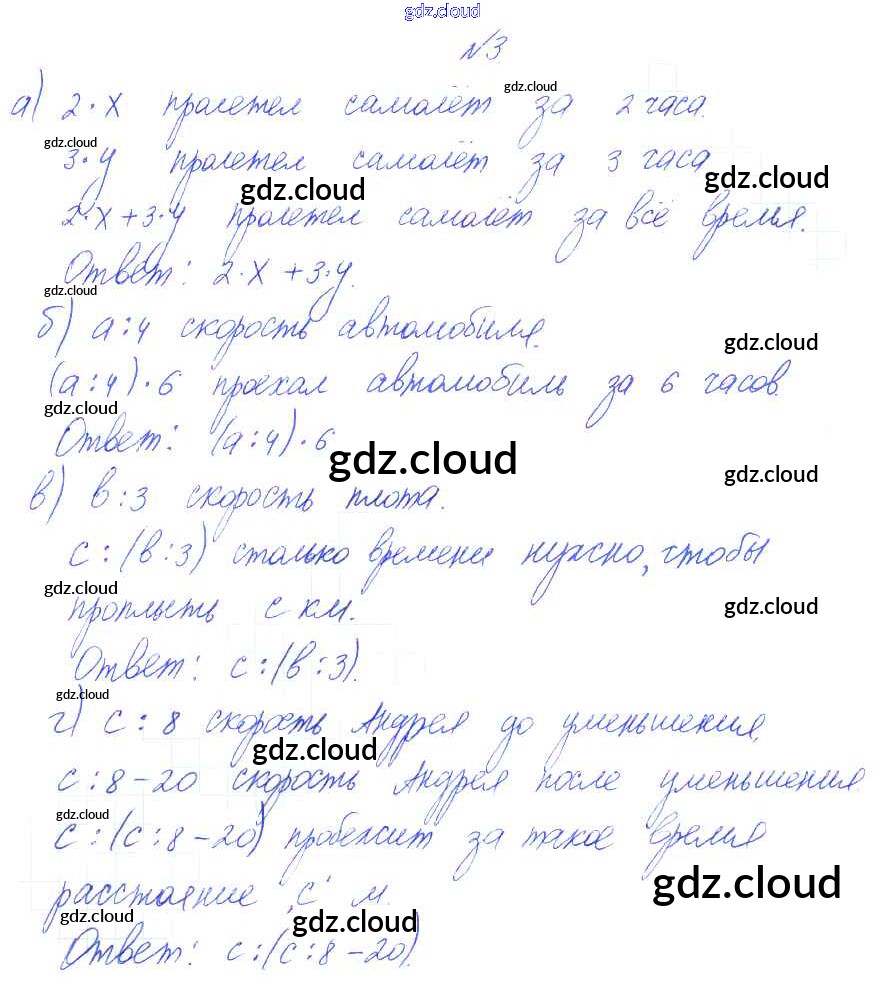 gdz.cloud
№3
gdz.cloud
а) 2·x пролетел самолёт за 2 часа.
gdz.cloud
3·y пролетел самолёт за 3 часа
gdz.cloud gdz.cloud
2·x+3·y пролетел самолёт за всё время.
Ответ: 2·x+3·y.
gdz.cloud
б) a:4 скорость автомобиля.
gdz.cloud
(a:4)·6 проехал автомобиль за 6 часов.
gdz.cloud
Ответ: (a:4)·6
gdz.cloud gdz.cloud
в) в:3 скорость плота.
с:(в:3) столько времени нужно, чтобы
gdz.cloud gdz.cloud
проплыть с км.
Ответ: с:(в:3).
gdz.cloud
г) с:8 скорость Андрея до уменьшения,
gdz.cloud
с:8-20 скорость Андрея после уменьшения.
gdz.cloud
с:(с:8-20) пробежит за такое время
расстояние "с" м.
gdz.cloud gdz.cloud gdz.cloud
Ответ: с:(с:8-20).